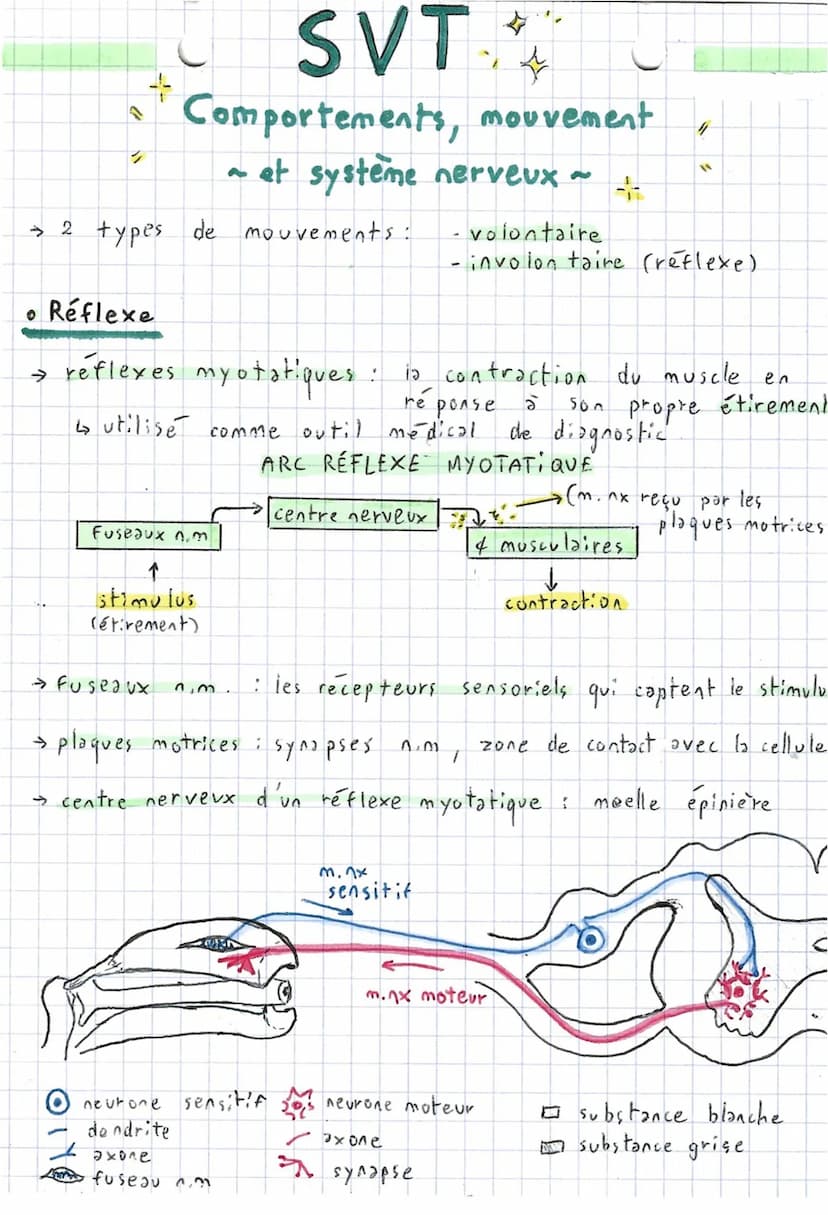 SVT
Comportements, mouvement
~ et système nerveux ~
→ 2 types de mouvements : - volontaire
- involontaire (réflexe)
• Réflexe
→ réflexes myotatiques : la contraction du muscle en
réponse à son propre étirement
↳ utilisé comme outil médical de diagnostic
ARC RÉFLEXE MYOTATIQUE
(m. nx reçu par les
plaques motrices
centre nerveux
fuseaux n.m
¢ musculaires
stimulus
(étirement)
contraction
→ fuseaux n.m. : les récepteurs sensoriels qui captent le stimulu
→ plaques motrices : synapses n.m, zone de contact avec la cellule
→ centre nerveux d'un réflexe myotatique : moelle épinière
m. nx
sensitif
m. nx moteur
neurone sensitif
dendrite
axone
fuseau n.m
neurone moteur
axone
synapse
substance blanche
substance grise